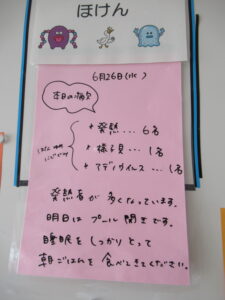 ほけん
6月26日(水)
本日の病欠
・発熱...6名
・様子見...1名
・アデノウイルス...1名
発熱者が多くなっています。
明日はプール開きです。
睡眠をしっかりとって
朝ごはんを食べてきてください。